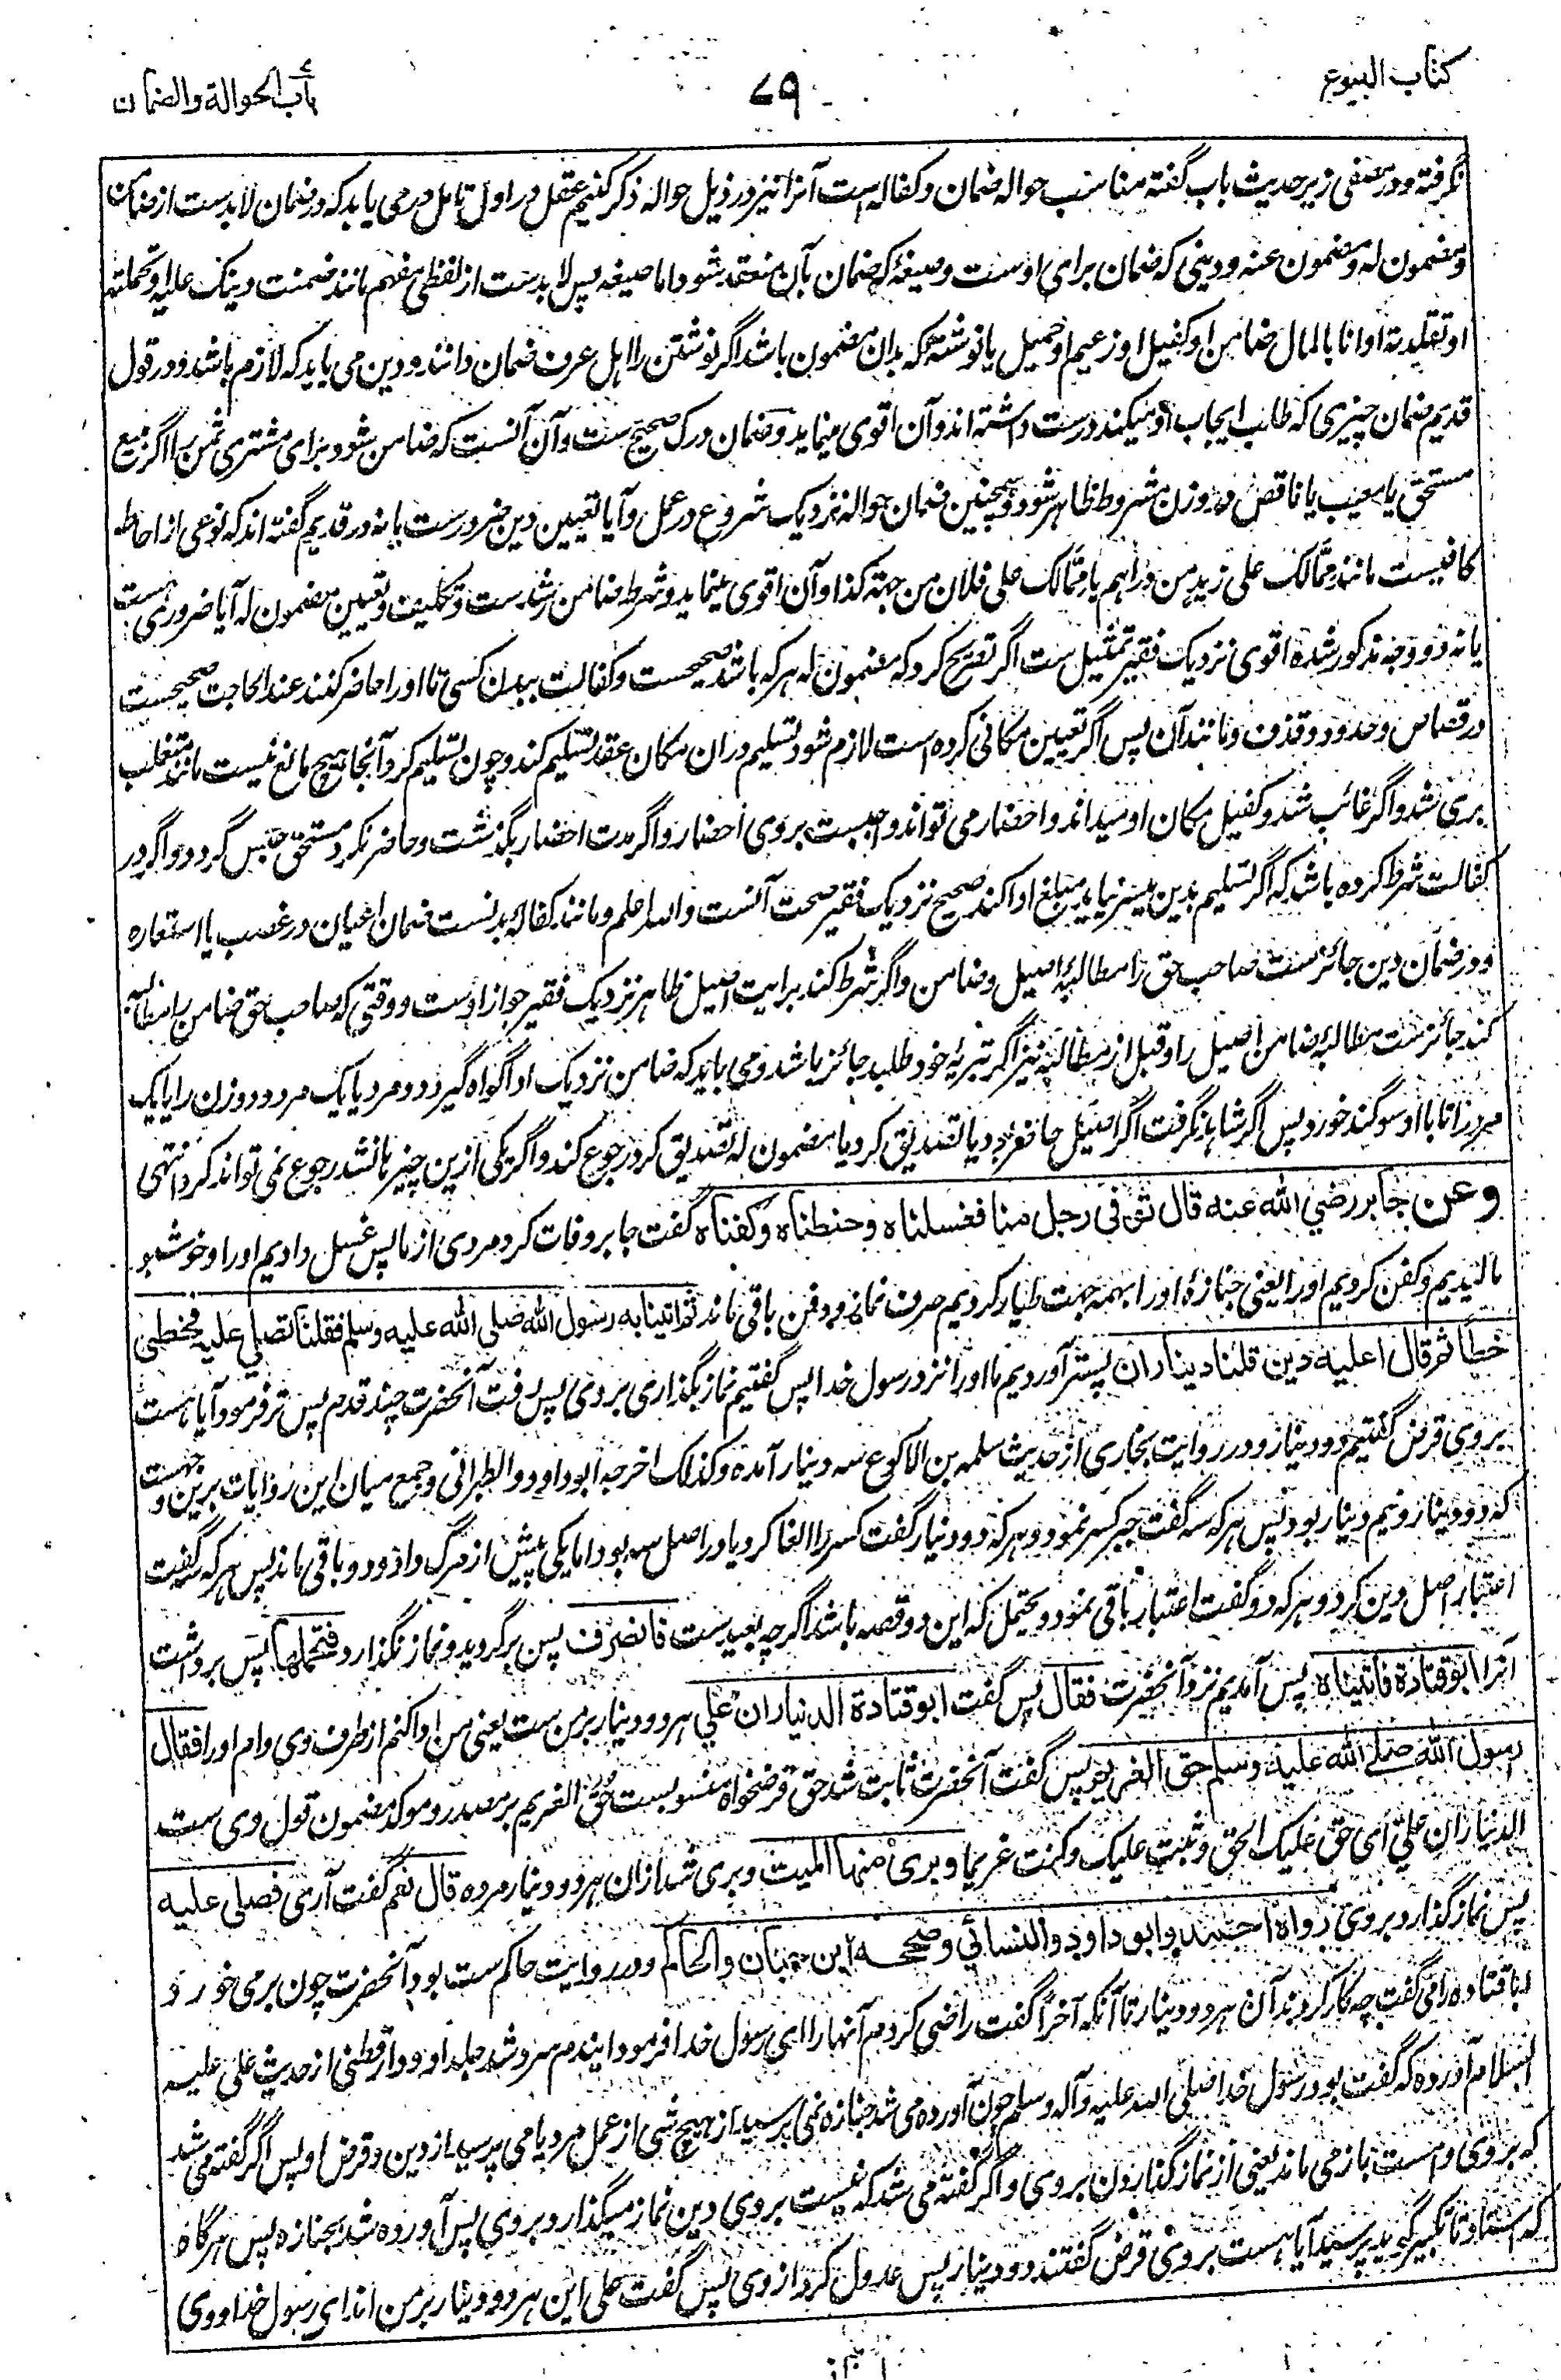 کتاب البیوع
۷۹
باب الحوالة والضمان
نگرفته و در مصفی زیر حدیث باب گفته مناسب حواله ضمان و کفاله است آنرا نیز در ذیل حواله ذکر کنیم عقل در اول تامل در می یابد که در ضمان لابدست از ضامن
و مضمون له و مضمون عنه و دینی که ضمان برای اوست و صیغهٔ که ضمان بآن منعقد شود اما صیغه پس لابدست از لفظی مفهم مانند ضمنت دینک علیه او تحملته
او تقلدته او انا بالمال ضامن او کفیل او زعیم او حمیل یا نوشتهٔ که بدان مضمون باشد اگر نوشتن را اهل عرف ضمان دانند و دین می باید که لازم باشد و در قول
قدیم ضمان چیزی که طالب ایجاب او میکند درست داشته اند و آن اقوی مینماید و ضمان درک صحیح ست و آن آنست که ضامن شود برای مشتری ثمن را اگر مبیع
مستحق یا معیب یا ناقص در وزن مشروط ظاهر شود و همچنین ضمان حواله نزدیک شروع در عمل و آیا تعیین دین ضرورست یا نه در قدیم گفته اند که نوعی از احاطه
کافیست مانند مالک علی زید من دراهم یا مالک علی فلان من جهة کذا و آن اقوی مینماید و شرط ضامن رشدست و تکلیف و تعیین مضمون له آیا ضروری ست
یا نه دو وجه مذکور شده اقوی نزدیک فقیر تمثیل ست اگر تصریح کرد که مضمون له هر که باشد صحیحست و کفالت ببدن کسی تا او را حاضر کنند عند الحاجت صحیحست
در قصاص و حدود و قذف و مانند آن پس اگر تعیین مکانی کرده است لازم شود تسلیم در ان مکان عقد تسلیم کند و چون تسلیم کرد آنجا هیچ مانع نیست مانند متغلب
بری شد و اگر غائب شد و کفیل مکان او میداند و احضار می تواند واجبست بر وی احضار و اگر مدت احضار بگذشت و حاضر نکرد مستحق حبس گردد و اگر در
کفالت شرط کرده باشد که اگر تسلیم بدین میسر نیاید مبلغ ادا کند صحیح نزدیک فقیر صحت آنست والله اعلم و مانند کفاله بدنست ضمان اعیان در غصب یا استعاره
و در ضمان دین جائزست صاحب حق را مطالبهٔ اصیل و ضامن و اگر شرط کند برایت اصیل ظاهر نزدیک فقیر جواز اوست و وقتی که صاحب حق ضامن را مطالبه
کند جائزست مطالبهٔ ضامن اصیل را و قبل از مطالبه نیز اگر تبریهٔ خود طلبد جائز باشد و می باید که ضامن نزدیک ادا گواه گیرد دو مرد یا یک مرد و دو زن را یا یک
مرد را تا با او سوگند خورد پس اگر شاهد نگرفت اگر اصیل حاضر بود یا تصدیق کرد یا مضمون له تصدیق کرد رجوع کند و اگر یکی ازین چیزها نشد رجوع نمی تواند کرد انتهی
وعن جابر رضي الله عنه قال توفي رجل منا فغسلناه وحنطناه وكفناه گفت جابر وفات کرد مردی از ما پس غسل دادیم او را و خوشبو
مالیدیم و کفن کردیم او را یعنی جنازهٔ او را بهمه جهت طیار کردیم صرف نماز و دفن باقی ماند ثم اتينا به رسول الله صلى الله عليه وسلم فقلنا تصلي عليه فخطى
خطا ثم قال اعليه دين قلنا ديناران پستر آوردیم ما او را نزد رسول خدا پس گفتیم نماز بگذاری بر وی پس رفت آنحضرت چند قدم پس تر فرمود آیا هست
بر وی قرض گفتیم دو دینار و در روایت بخاری از حدیث سلمه بن الاکوع سه دینار آمده وکذلک اخرجه ابوداود والطبرانی و جمع میان این روایات برین وجهست
که دو دینار و نیم دینار بود پس هر که سه گفت جبر کسر نمود و هر که دو دینار گفت کسر را الغا کرد یا در اصل سه بود اما یکی پیش از مرگ داد و دو باقی ماند پس هر که سه گفت
اعتبار اصل دین کرد و هر که دو گفت اعتبار باقی نمود و یحتمل که این دو قصه باشد اگرچه بعیدست فانصرف پس برگردید و نماز نگذارد فتحملها پس برداشت
آنرا ابو قتادة فاتيناه پس آمدیم نزد آنحضرت فقال پس گفت ابو قتادة الديناران علي هر دو دینار بر من ست یعنی من ادا کنم از طرف وی وام او را فقال
رسول الله صلى الله عليه وسلم حق الغريم پس گفت آنحضرت ثابت شد حق قرضخواه منسوبست حق الغریم بر مصدر و موکد مضمون قول وی ست
الديناران علي ای حق علیک الحق و ثبت علیک و کنت غریما وبرئ منها الميت و بری شد ازان هر دو دینار مرده قال نعم گفت آری فصلى عليه
پس نماز گذارد بر وی رواه احمد وابو داود والنسائي وصححه ابن حبان والحاكم و در روایت حاکم ست بود آنحضرت چون بر می خورد
ابا قتاده را می گفت چه کار کردند آن هر دو دینار تا آنکه آخراً گفت راضی کردم آنها را ای رسول خدا فرمود ایندم سرد شد جلد او و دارقطنی از حدیث علی علیه
السلام آورده که گفت بود رسول خدا صلی الله علیه وآله وسلم چون آورده می شد جنازه نمی پرسید از هیچ شی از عمل مرد یا می پرسید از دین و قرض او پس اگر گفته می شد
که بر وی وامست باز می ماند یعنی از نماز گذاردن بر وی و اگر گفته می شد که نیست بر وی دین نماز میگذارد بر وی پس آورده شد بجنازه پس هرگاه
که استاد تا تکبیر گوید پرسید آیا هست بر وی قرض گفتند دو دینار پس عدول کرد از وی پس گفت علی این هر دو دینار بر من اند ای رسول خدا و وی